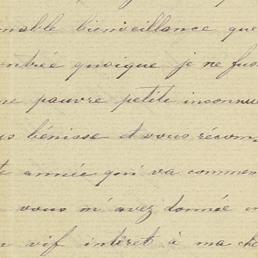 mable bienveillance que
ontrée quoique je ne fus
ne pauvre petite inconnue
us bénisse et vous récom
te année qui va commen
vous m'avez donnée
n vif intérêt à ma che